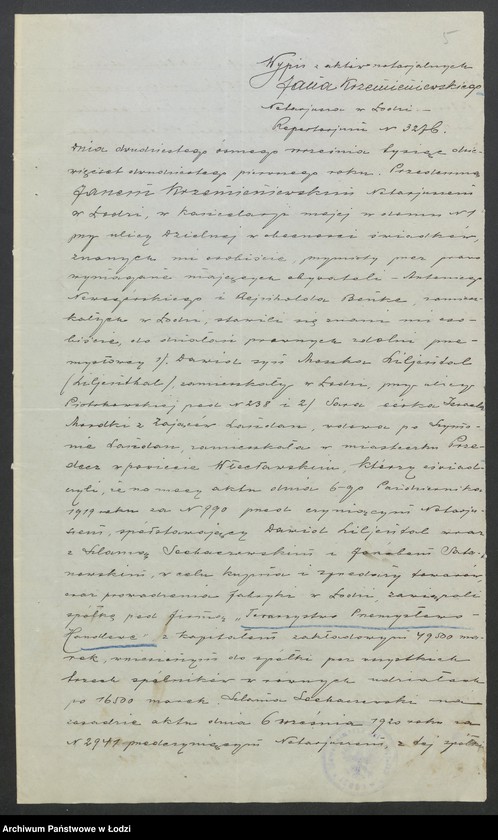 5
Wypis z aktów notarjalnych
Jana Krzemieniewskiego
Notarjusza w Łodzi
Repertorjum N 3276.
Dnia dwudziestego ósmego września tysiąc dzie-
więćset dwudziestego pierwszego roku. Przedemną
Janem Krzemieniewskim Notarjuszem
w Łodzi, w kancelarji mojej w domu N 1
przy ulicy Dzielnej w obecności świadków,
znanych mi osobiście, przymioty przez prawo
wymagane mających obywateli - Antoniego
i Benke, zamiesz-
kałych w Łodzi, stawili się znani mi oso-
biście, do działań prawnych zdolni prze-
mysłowcy 1/. Dawid syn Moszka Liljental
(Liljenthal), zamieszkały w Łodzi, przy ulicy
Piotrkowskiej pod N 238 i 2) Sara córka
Mordki z Zająców Landau, wdowa po Szymo-
nie Landau, zamieszkała w miasteczku Prze-
decz w powiecie Włocławskim, którzy oświad-
czyli, że na mocy aktu dnia 6-go Października
1919 roku za N 990 przed czyniącym Notarju-
szem, spółstawający Dawid Liljental wraz
z Szlamą Sochaczewskim i
, w celu kupna i sprzedaży towarów,
oraz prowadzenia fabryki w Łodzi, zawiązali
spółkę pod firmą "Towarzystwo Przemysłowo-
Handlowe" z kapitałem zakładowym 49500 ma-
rek, wniesionym do spółki przez wszystkich
trzech spólników w równych udziałach
po 16500 marek. Szlama Sochaczewski na
zasadzie aktu dnia 6 września 1920 roku za
N 2941 przed czyniącym Notarjuszem, z tej spółki
Archiwum Państwowe w Łodzi